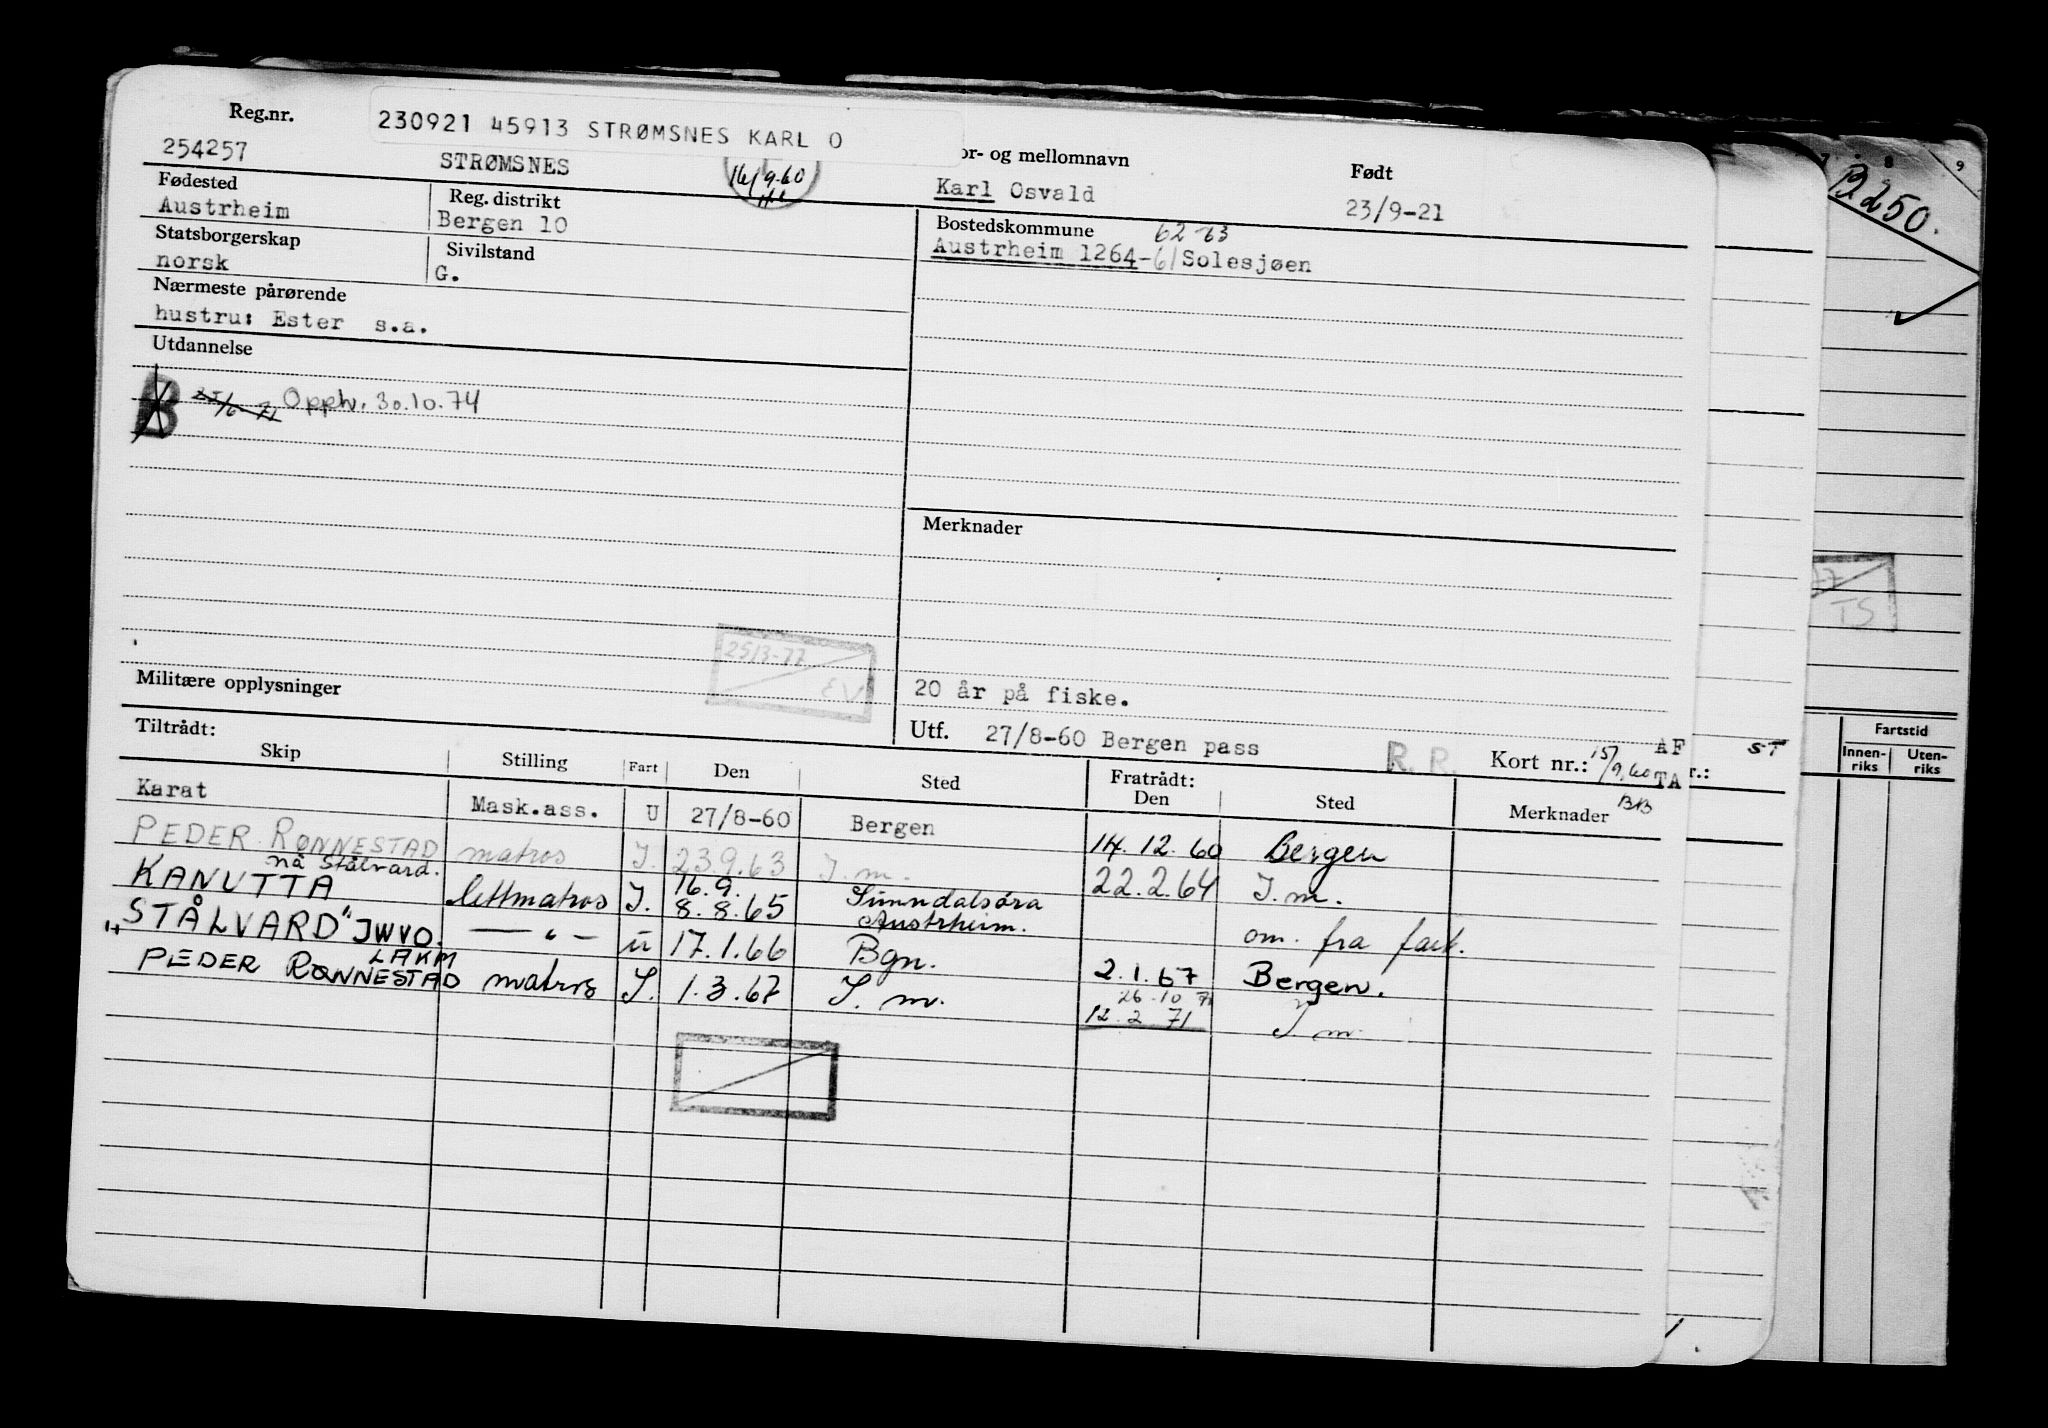 Reg.nr.
230921 45913 STRØMSNES KARL O
254257 STRØMSNES
16/9.60
or- og mellomnavn
Karl Osvald
Født
23/9-21
Fødested
Austrheim
Reg. distrikt
Bergen 10
Statsborgerskap
norsk
Sivilstand
G.
Bostedskommune
62 63
Austrheim 1264-61 Solesjøen
Nærmeste pårørende
hustru: Ester s.a.
Utdannelse
B Opphv. 30.10.74
Merknader
25/3-77
EV
Militære opplysninger
20 år på fiske.
Utf. 27/8-60 Bergen pass
R. R.
Kort nr.: 15/9.60
AF
TA
BB
Tiltrådt:
Skip Stilling Fart Den Sted Fratrådt: Den Sted Merknader
Karat Mask.ass. U 27/8-60 Bergen 14.12.60 Bergen
PEDER RØNNESTAD matros I. 23.9.63 I.m. 22.2.64 I.m.
nå Stålvard.
KANUTTA lettmatros I. 16.9. 8.8.65 Sunndalsøra Austrheim. om. fra fart.
"STÅLVARD" JWVO. — " — u 17.1.66 Bgn. 2.1.67 Bergen.
LAKM
PEDER RØNNESTAD matros I. 1.3.67 I. m. 12.2 71 I m
26.10 71
B250.
8 9
77
TS
ST
r.:
Fartstid
Innen-
riks
Uten-
riks